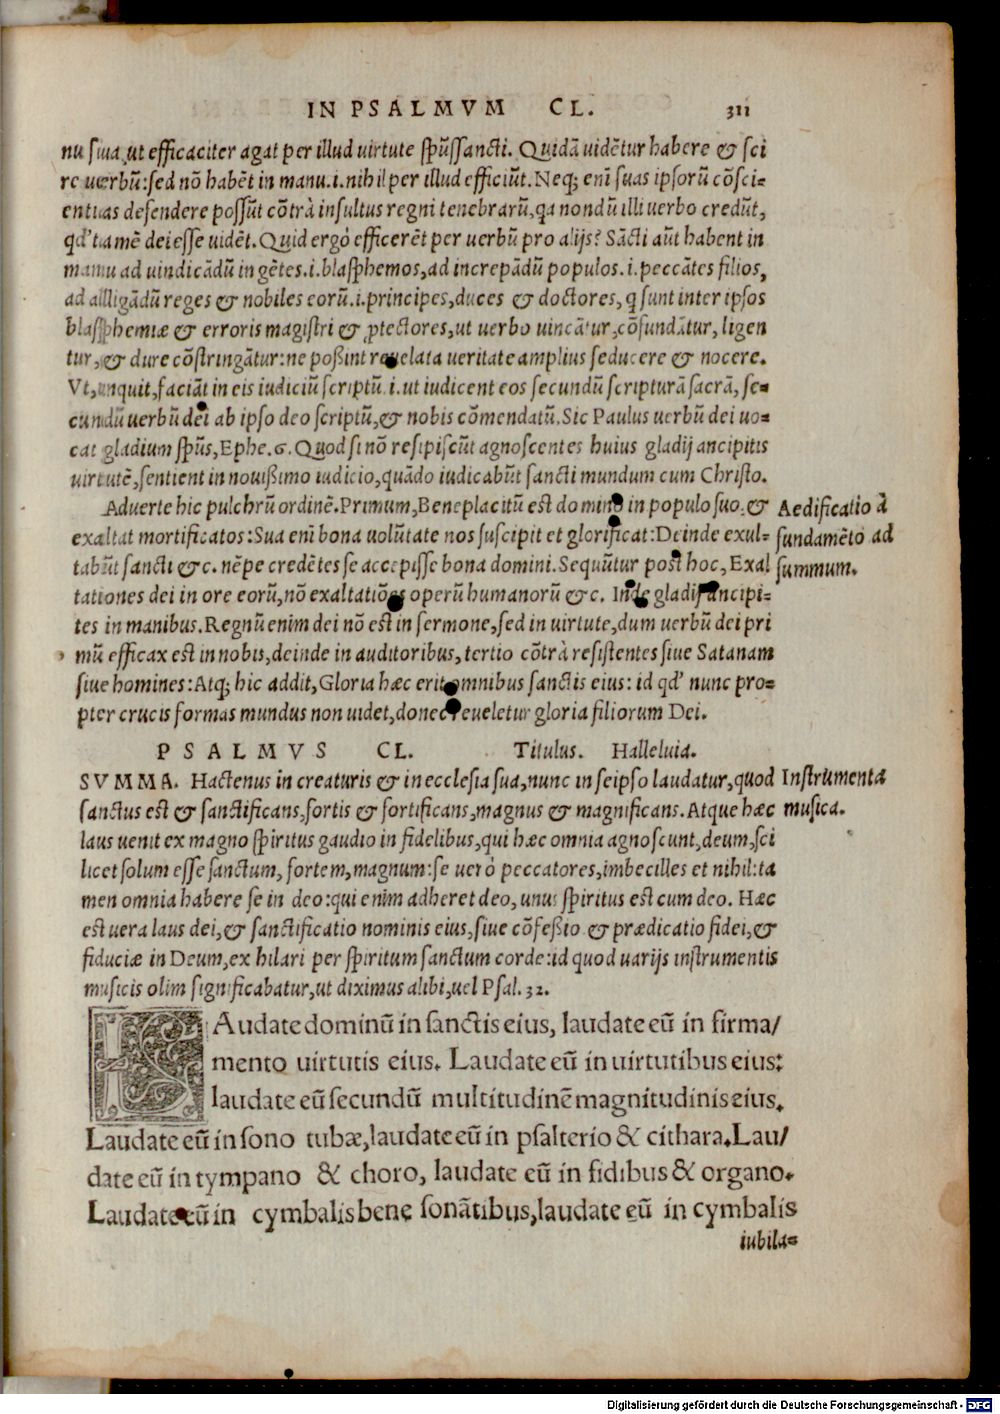 IN PSALMVM CL. 311
nu sua ut efficaciter agat per illud uirtute spũssancti. Quidã uidẽtur habere & sci
re uerbũ:sed nõ habẽt in manu.i.nihil per illud efficiũt. Neq; enĩ suas ipsorũ cõsci-
entias defendere possũt cõtrà insultus regni tenebrarũ,qa nondũ illi uerbo credũt,
qd' tamẽ dei esse uidẽt. Quid ergò efficerẽt per uerbũ pro alijs? Sãcti aũt habent in
manu ad uindicãdũ in gẽtes.i.blasphemos,ad increpãdũ populos.i.peccãtes filios,
ad alligãdũ reges & nobiles eorũ.i.principes,duces & doctores, q sunt inter ipsos
blasphemiæ & erroris magistri & ꝓtectores,ut uerbo uincãtur,cõfundãtur, ligen
tur,& dure cõstringãtur:ne poßint reuelata ueritate amplius seducere & nocere.
Vt,inquit,faciãt in eis iudiciũ scriptũ.i.ut iudicent eos secundũ scripturã sacrã, se-
cundũ uerbũ dei ab ipso deo scriptũ,& nobis cõmendatũ. Sic Paulus uerbũ dei uo-
cat gladium spũs,Ephe.6. Quod si nõ resipiscũt agnoscentes huius gladij ancipitis
uirtutẽ,sentient in nouißimo iudicio,quãdo iudicabũt sancti mundum cum Christo.
Aduerte hic pulchrũ ordinẽ. Primum,Beneplacitũ est domino in populo suo,&
Aedificatio à
exaltat mortificatos:Sua enĩ bona uolũtate nos suscipit et glorificat:Deinde exul-
fundamẽto ad
tabũt sancti &c. nẽpe credẽtes se accepisse bona domini. Sequũtur post hoc, Exal
summum.
tationes dei in ore eorũ,nõ exaltatiões operũ humanorũ &c. Inde gladij ancipi-
tes in manibus. Regnũ enim dei nõ est in sermone,sed in uirtute,dum uerbũ dei pri
mũ efficax est in nobis,deinde in auditoribus, tertio cõtrà resistentes siue Satanam
siue homines:Atq; hic addit,Gloria hæc erit omnibus sanctis eius: id qd' nunc pro-
pter crucis formas mundus non uidet,donec reueletur gloria filiorum Dei.
PSALMVS CL. Titulus. Halleluia.
SVMMA. Hactenus in creaturis & in ecclesia sua,nunc in seipso laudatur,quod
Instrumenta
sanctus est & sanctificans,fortis & fortificans,magnus & magnificans. Atque hæc
musica.
laus uenit ex magno spiritus gaudio in fidelibus,qui hæc omnia agnoscunt,deum,sci
licet solum esse sanctum, fortem,magnum:se uerò peccatores,imbecilles et nihil:ta
men omnia habere se in deo:qui enim adheret deo, unus spiritus est cum deo. Hæc
est uera laus dei,& sanctificatio nominis eius,siue cõfeßio & prædicatio fidei,&
fiduciæ in Deum,ex hilari per spiritum sanctum corde:id quod uarijs instrumentis
musicis olim significabatur,ut diximus alibi,uel Psal. 32.
LAudate dominũ in sanctis eius, laudate eũ in firma/
mento uirtutis eius. Laudate eũ in uirtutibus eius:
laudate eũ secundũ multitudinẽ magnitudinis eius.
Laudate eũ in sono tubæ,laudate eũ in psalterio & cithara.Lau/
date eũ in tympano & choro, laudate eũ in fidibus & organo.
Laudate eũ in cymbalis bene sonãtibus,laudate eũ in cymbalis
iubila-
Digitalisierung gefördert durch die Deutsche Forschungsgemeinschaft - DFG